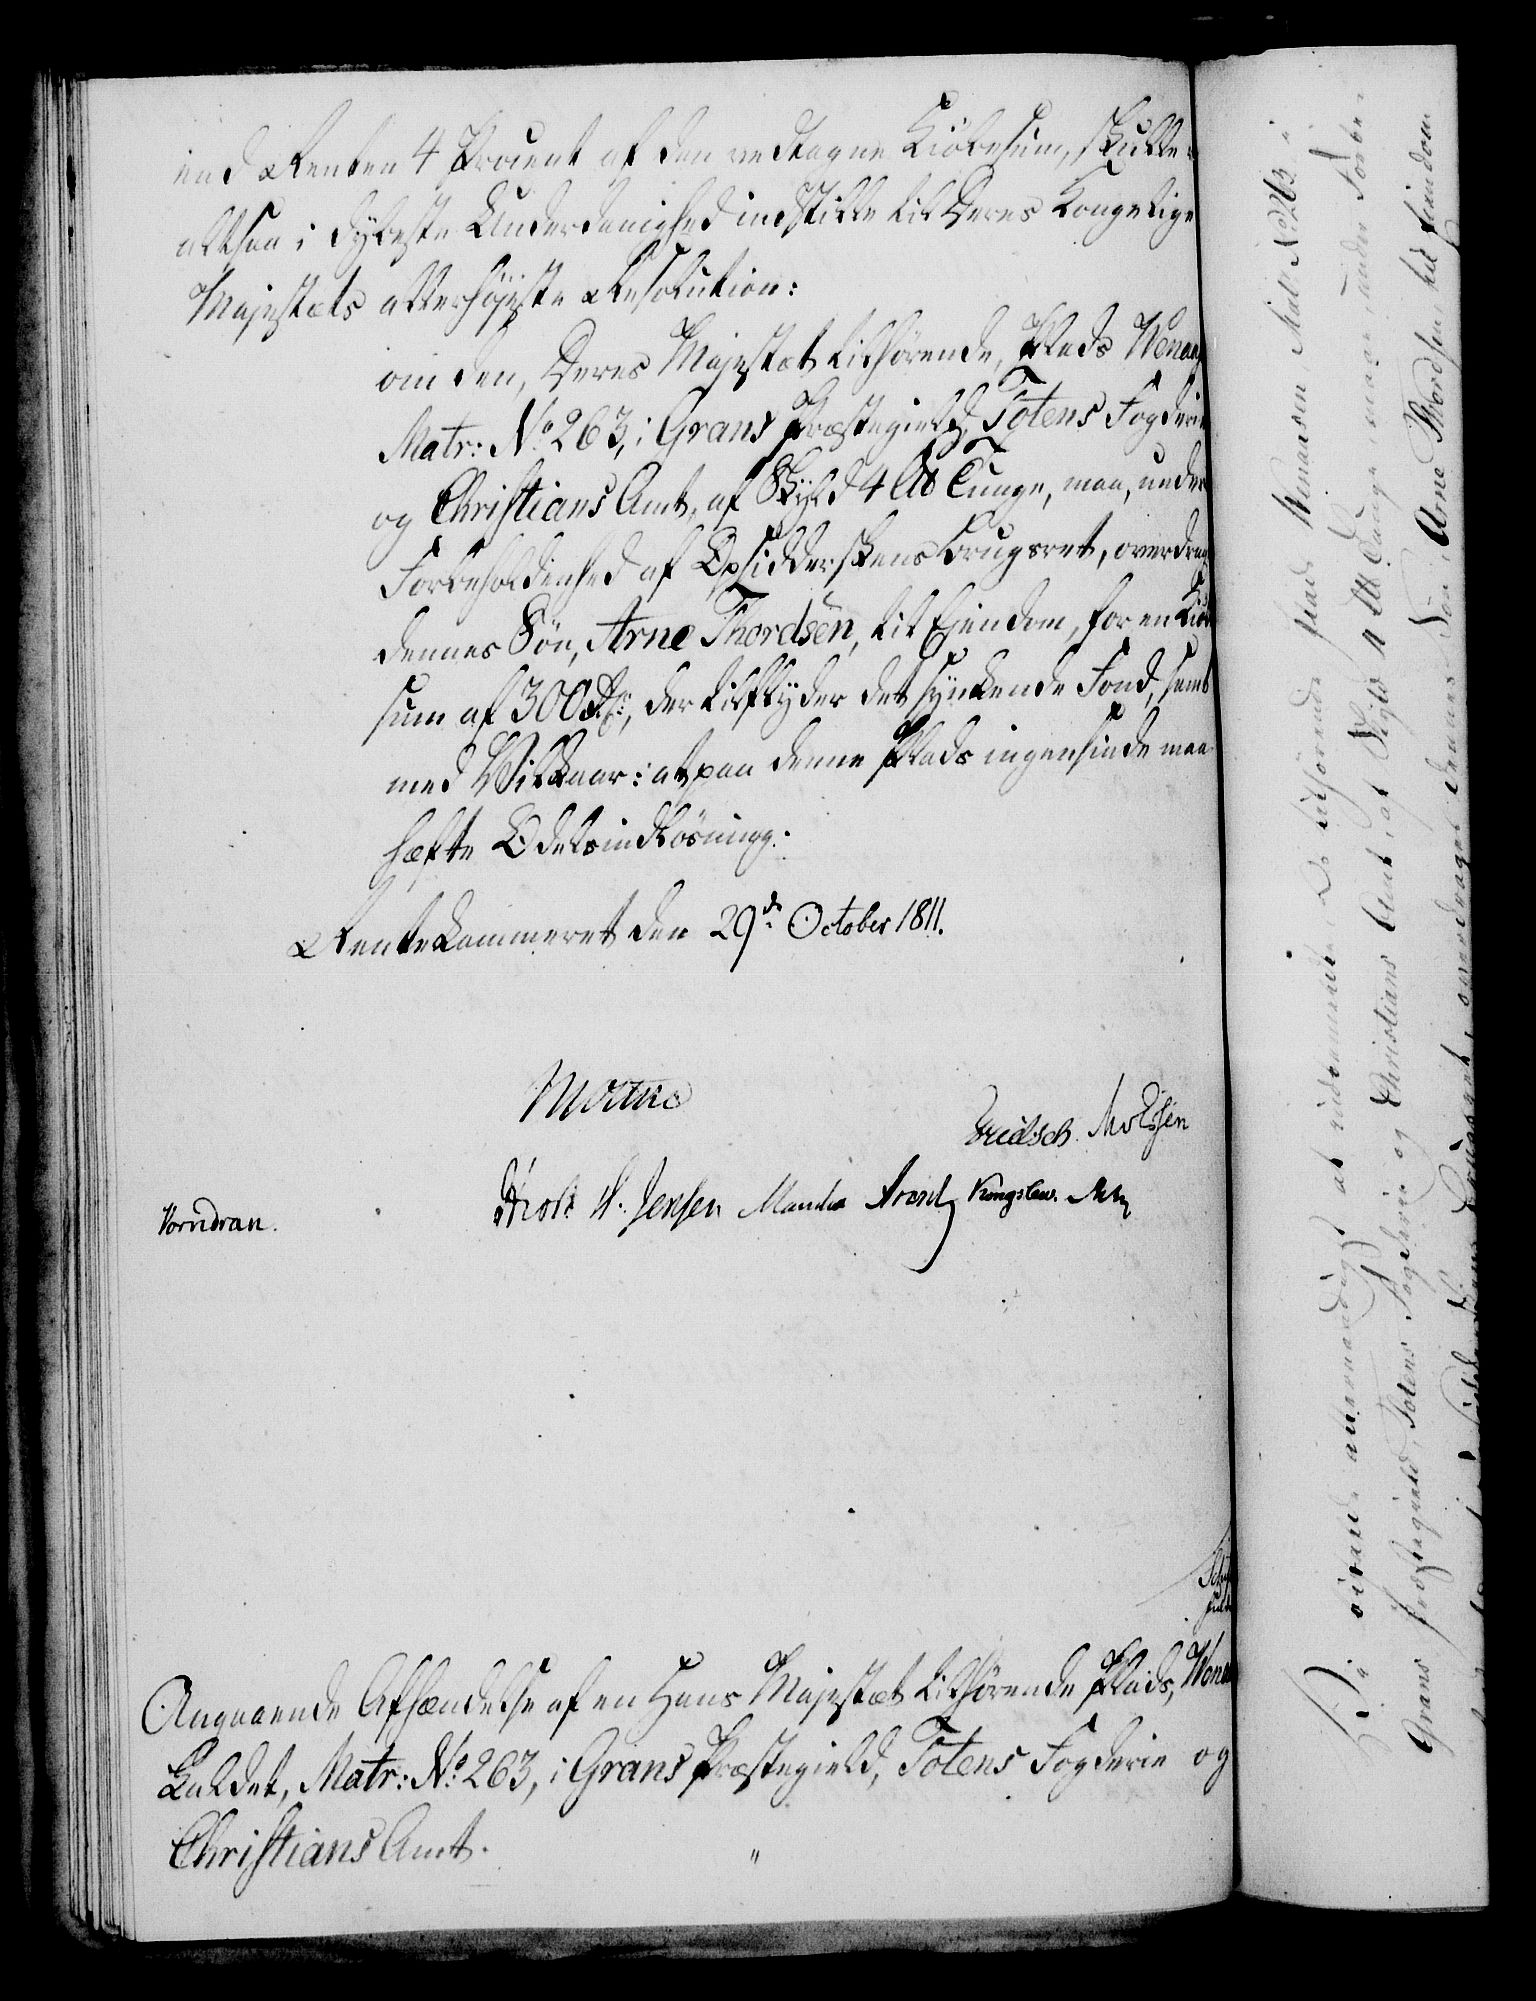 end Renten 4 Procent af den vedtagne Kiöbesum, skulle
altsaa i dybeste Underdanighed indstille til Deres Kongelige
Majestæts allerhöjeste Resolution:
om den, Deres Majestæt tilhörende, Plads
Matr: No 263, i Grans Præstegield, Totens Fogderie
og Christians Amt, af Skyld 4 lb Tunge, maa, under
Forbeholdenhed af Opsidderskens Brugsret, overdrag
dennes Sön, Arne Thordsen, til Ejendom, for en Kiöbe
sum af 300 Rdr, der tilflyder det synkende Fond, samt
med Vilkaar: at paa denne Plads ingensinde maa
hæfte Odelsindlösning.
Rentekammeret den 29de October 1811.
Mölme
Knudsen
Holst W. Jensen Arent Kongslew.
Vorndran.
Angaaende Afhændelse af en Hans Majestæt tilhörende Plads,
kaldet, Matr: No 263, i Grans Præstegield, Totens Fogderie og
Christians Amt.
Vi at tilhörende Plads Matr No 263 i
Grans Præstegield, Totens Fogderie og Christians Amt, af Skyld 4 lb Tunge, maae, under Forbe
Brugsret, overdrages dennes Sön, Arne Thordsen, til Eiendom